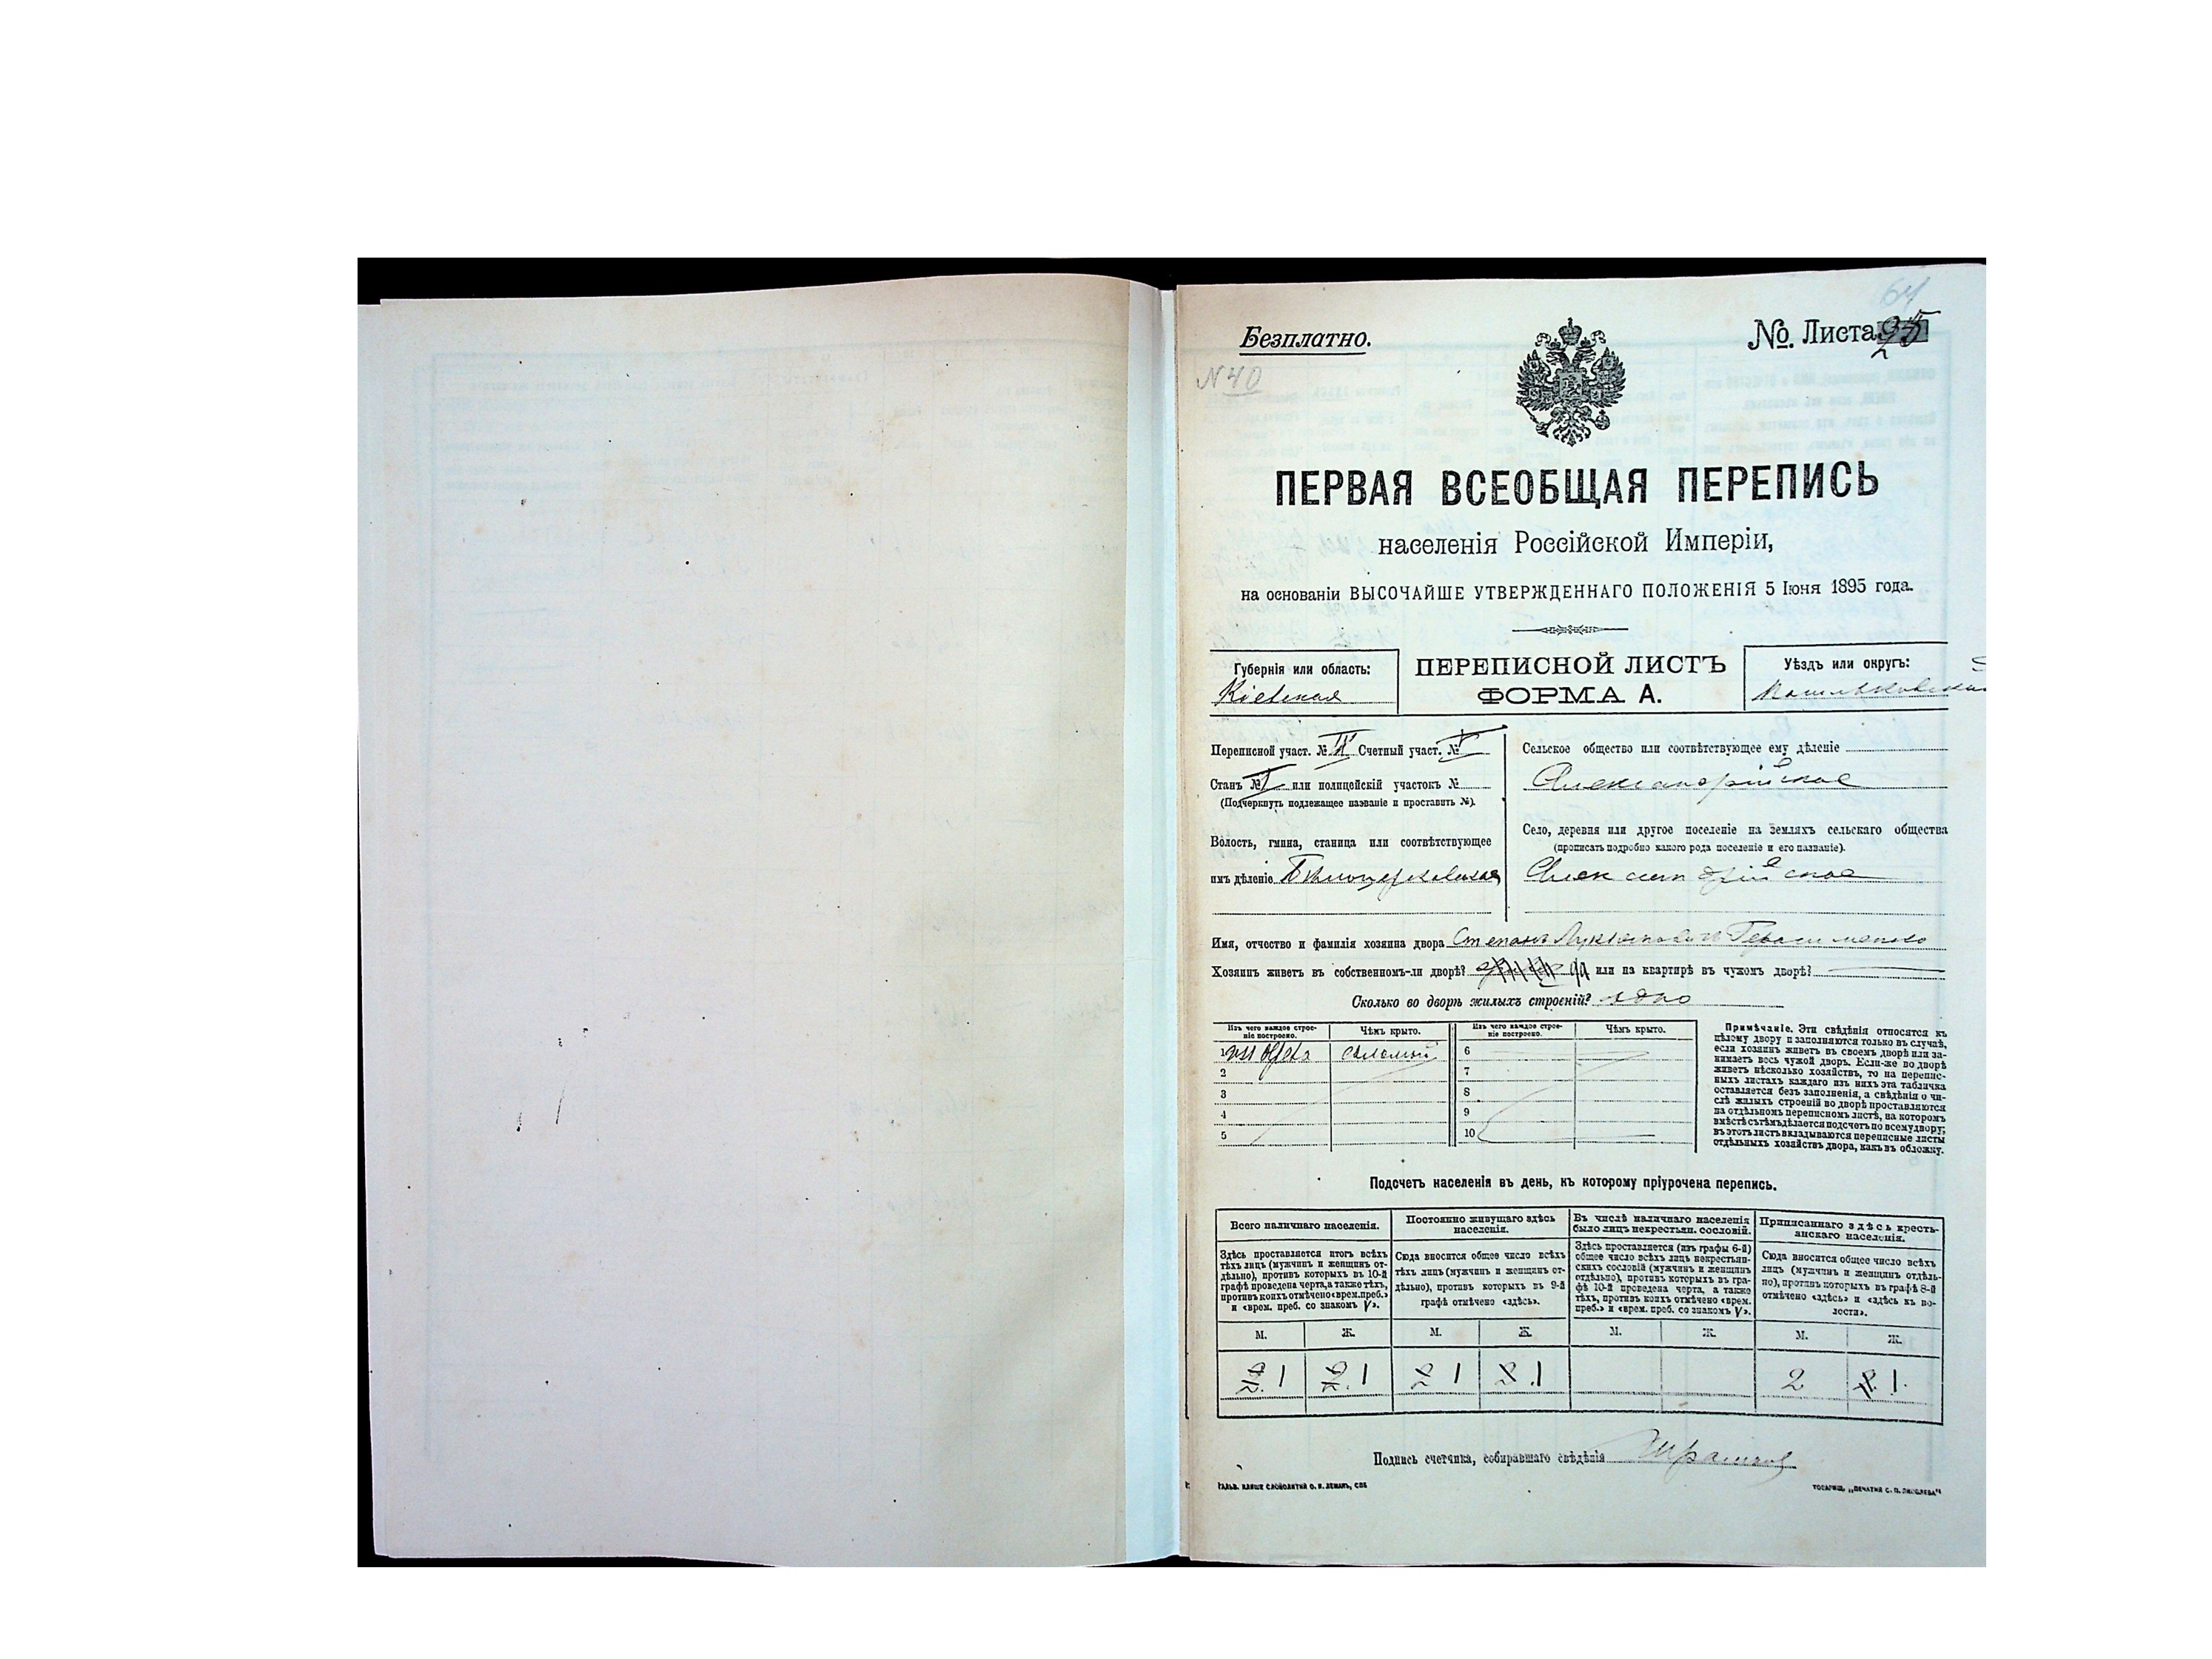 64
Безплатно.
№. Листа 25
N 40
ПЕРВАЯ ВСЕОБЩАЯ ПЕРЕПИСЬ
населенія Россійской Имперіи,
на основаніи ВЫСОЧАЙШЕ УТВЕРЖДЕННАГО ПОЛОЖЕНІЯ 5 Іюня 1895 года.
Губернія или область:
Кіевская
ПЕРЕПИСНОЙ ЛИСТЪ
ФОРМА А.
Уѣздъ или округъ:
Васильковскій
Переписной участ. № II Счетный участ. № V
Станъ № I или полицейскій участокъ №
(Подчеркнуть подлежащее названіе и проставить №).
Волость, гмина, станица или соотвѣтствующее
имъ дѣленіе Бѣлоцерковская
Сельское общество или соотвѣтствующее ему дѣленіе
Александрійское
Село, деревня или другое поселеніе на земляхъ сельскаго общества
(прописать подробно какого рода поселеніе и его названіе).
Александрійское
Имя, отчество и фамилія хозяина двора Степанъ Лукьяновичъ Герасименко
Хозяинъ живетъ въ собственномъ-ли дворѣ? или на квартирѣ въ чужомъ дворѣ?
Сколько во дворѣ жилыхъ строеній? одно
Изъ чего каждое строе-
ніе построено.
Чѣмъ крыто.
Изъ чего каждое строе-
ніе построено.
Чѣмъ крыто.
1 изъ дерева соломой
2
3
4
5
6
7
8
9
10
Примѣчаніе. Эти свѣдѣнія относятся къ
цѣлому двору и заполняются только въ случаѣ,
если хозяинъ живетъ въ своемъ дворѣ или за-
нимаетъ весь чужой дворъ. Если-же во дворѣ
живетъ нѣсколько хозяйствъ, то на перепис-
ныхъ листахъ каждаго изъ нихъ эта табличка
оставляется безъ заполненія, а свѣдѣнія о чи-
слѣ жилыхъ строеній во дворѣ проставляются
на отдѣльномъ переписномъ листѣ, на которомъ
вмѣстѣ съ тѣмъ дѣлается подсчетъ по всему двору;
въ этотъ листъ вкладываются переписные листы
отдѣльныхъ хозяйствъ двора, какъ въ обложку.
Подсчетъ населенія въ день, къ которому пріурочена перепись.
Всего наличнаго населенія.
Здѣсь проставляется итогъ всѣхъ
тѣхъ лицъ (мужчинъ и женщинъ от-
дѣльно), противъ которыхъ въ 10-й
графѣ проведена черта, а также тѣхъ,
противъ коихъ отмѣчено «врем. преб.»
и «врем. преб. со знакомъ V».
Постоянно живущаго здѣсь
населенія.
Сюда вносится общее число всѣхъ
тѣхъ лицъ (мужчинъ и женщинъ от-
дѣльно), противъ которыхъ въ 9-й
графѣ отмѣчено «здѣсь».
Въ числѣ наличнаго населенія
было лицъ некрестьян. сословій.
Здѣсь проставляется (изъ графы 6-й)
общее число всѣхъ лицъ некрестьян-
скихъ сословій (мужчинъ и женщинъ
отдѣльно), противъ которыхъ въ гра-
фѣ 10-й проведена черта, а также
тѣхъ, противъ коихъ отмѣчено «врем.
преб.» и «врем. преб. со знакомъ V».
Приписаннаго здѣсь кресть-
янскаго населенія.
Сюда вносится общее число всѣхъ
лицъ (мужчинъ и женщинъ отдѣль-
но), противъ которыхъ въ графѣ 8-й
отмѣчено «здѣсь» и «здѣсь къ во-
лости».
М. Ж. М. Ж. М. Ж. М. Ж.
2 1 2 1 2 1 2 1 2 2 1
Подпись счетчика, собиравшаго свѣдѣнія
ГАЛЬВ. КЛИШЕ СЛОВОЛИТНИ О. И. ЛЕМАНЪ, СПБ
ТОВАРИЩ. „ПЕЧАТНЯ С. П. ЯКОВЛЕВА“